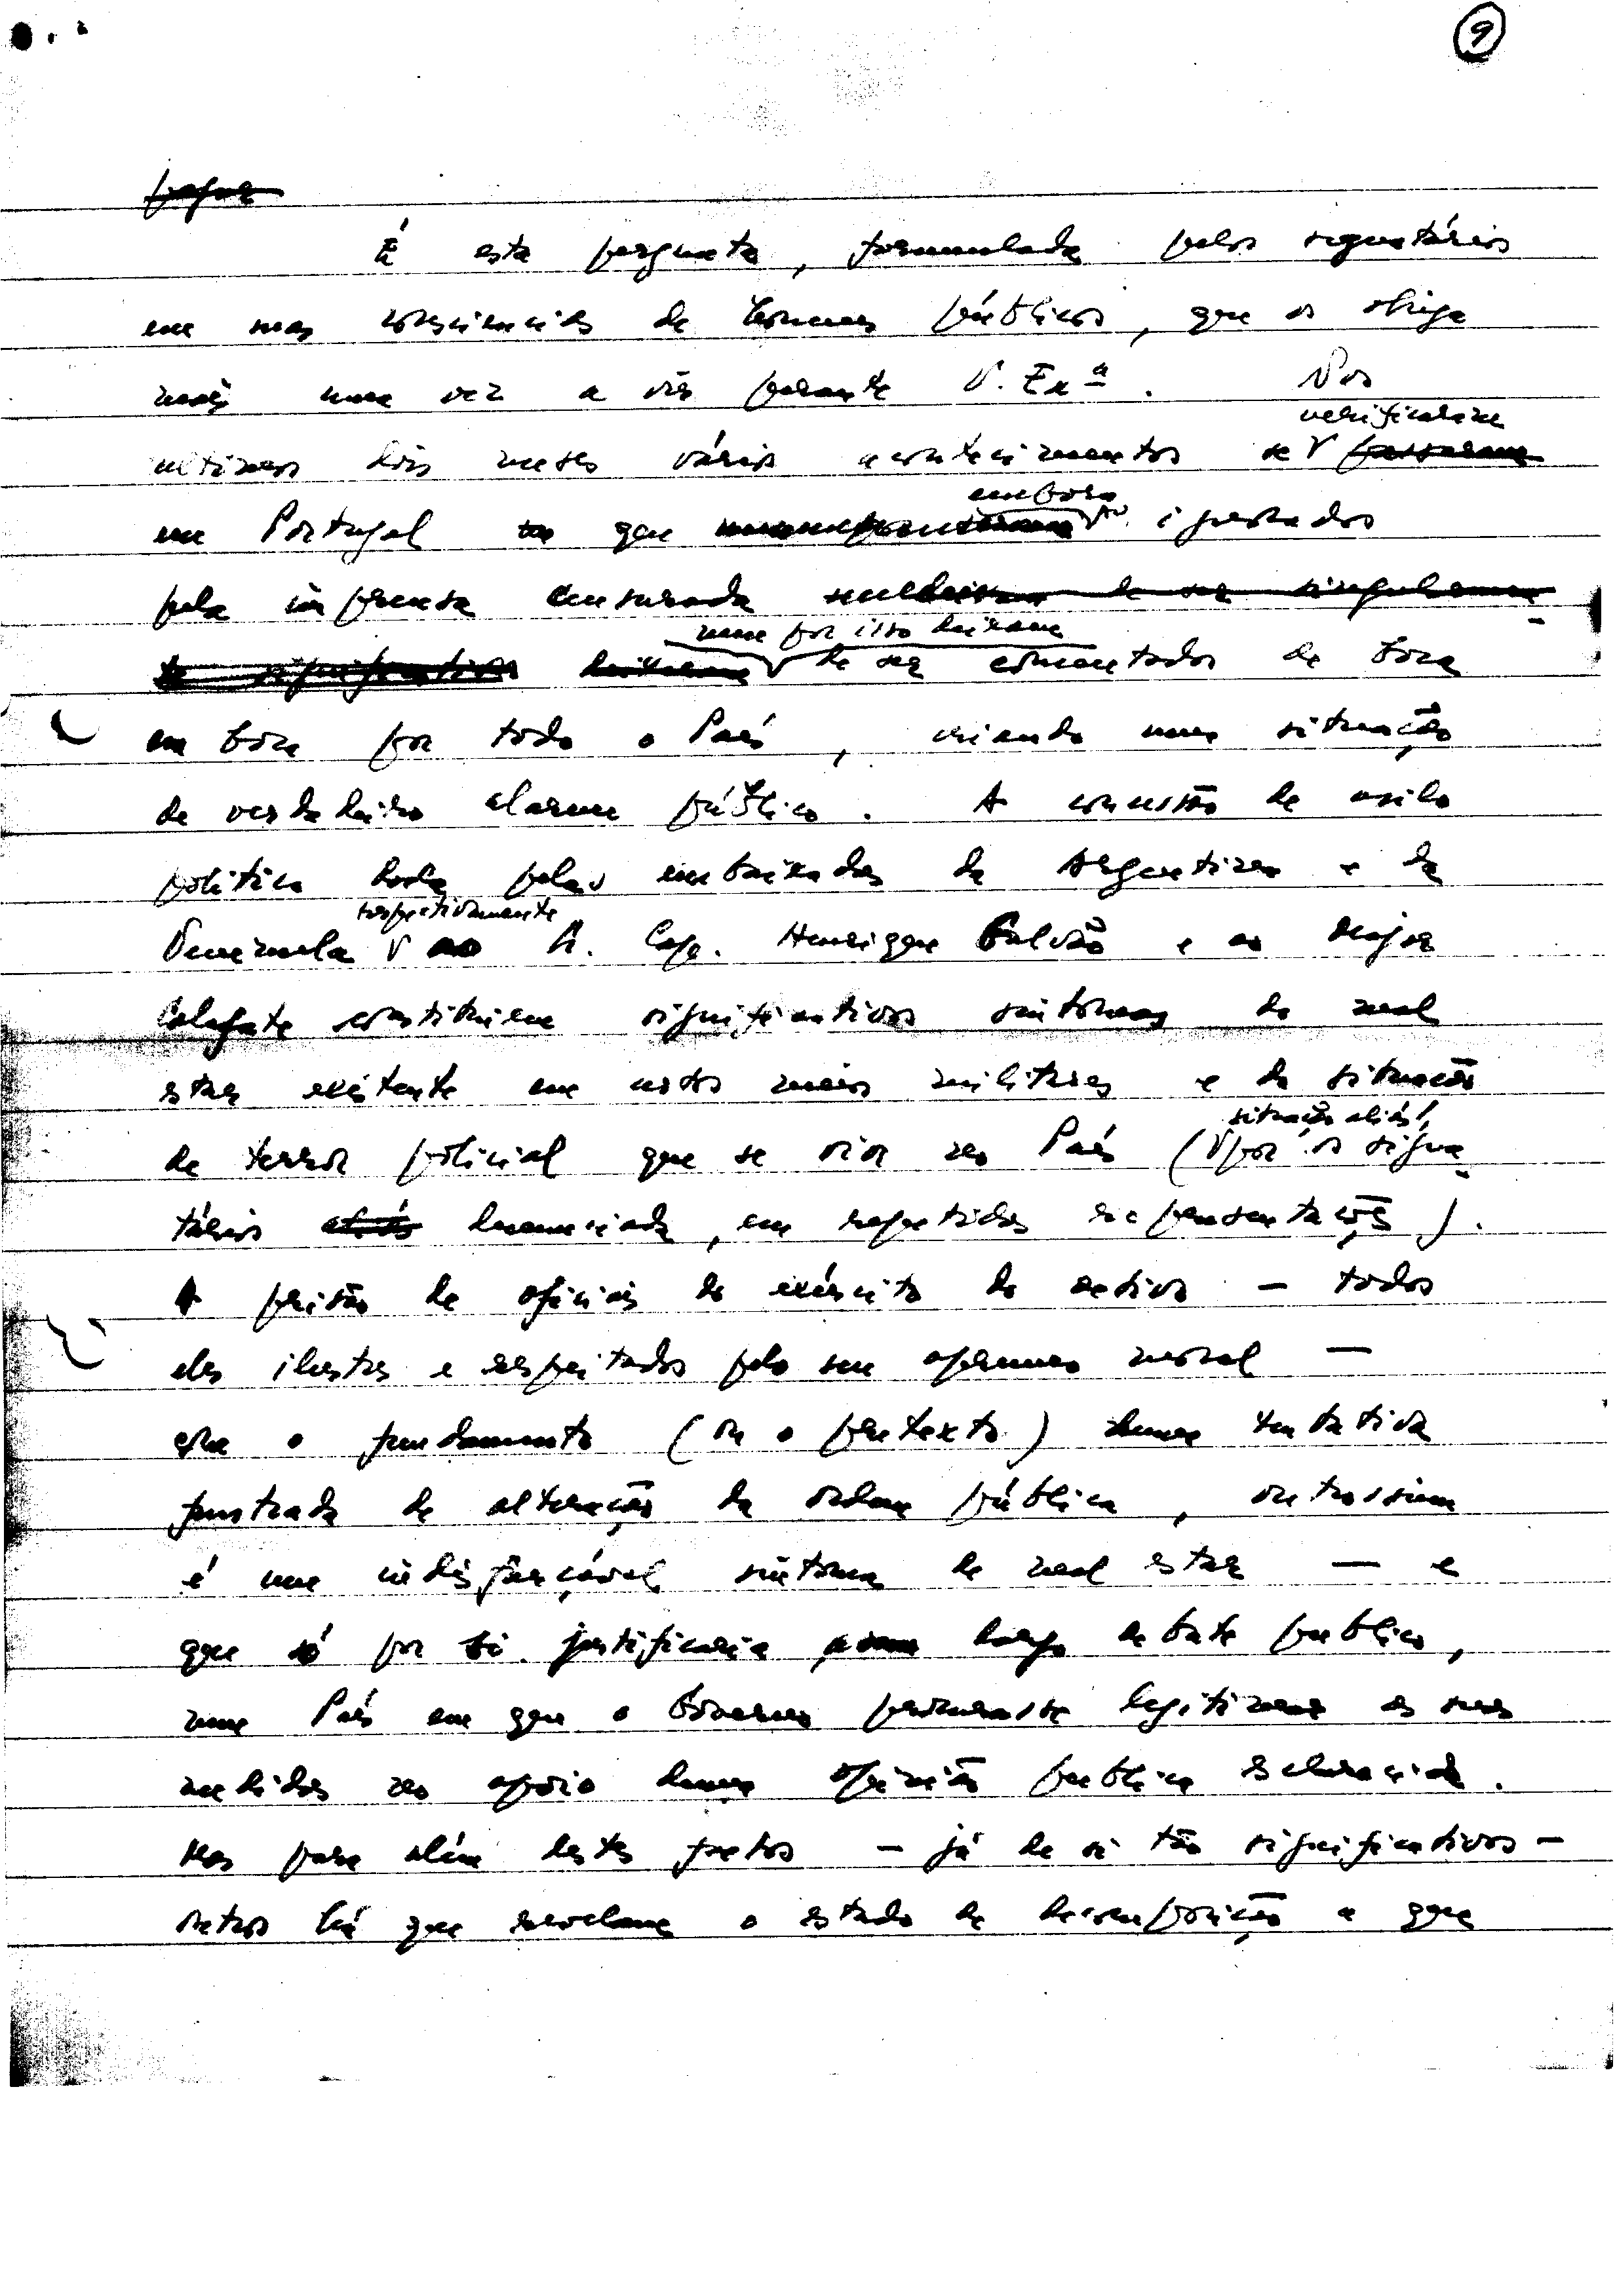 9
É esta pergunta, formulada pelos signatários
em suas consciências de homens públicos, que os obriga
mais uma vez a vir perante V. Exª. Nos
verificaram
ultimos dois meses vários acontecimentos se passaram
embora
em Portugal que ignorados
pela imprensa censurada de ser singularmen-
nem por isso deixaram
te significativos deixaram de ser comentados de boca
em boca por todo o País, criando uma situação
de verdadeiro alarme público. A concessão de asilo
politico dada pelas embaixadas da Argentina e da
respectivamente
Venezuela ao Cap. Henrique Galvão e ao major
Calafate constituem significativos sintomas do mal
estar existente em certos meios militares e da situação
situação aliás,
de terror policial que se vive no País (por os signa-
tários aliás denunciada, em repetidas representações).
A prisão de oficiais do exército do activo — todos
eles ilustres e respeitados pelo seu aprumo moral —
sob o fundamento (ou o pretexto) duma tentativa
frustrada de alteração da ordem pública, outrossim
é um indisfarçável sintoma de mal estar — e
que só por si justificaria largo debate publico,
num País em que o Governo procurasse legitimar as suas
medidas no apoio duma opinião publica esclarecida.
Mas para além destes factos — já de si tão significativos —
outros há que revelam o estado de decomposição a que